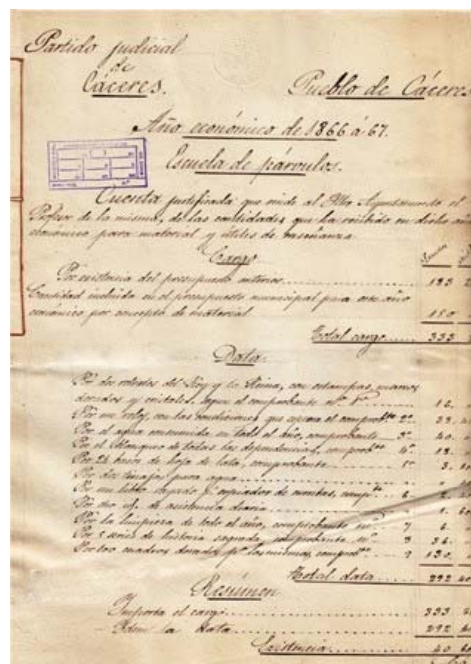 Partido judicial
de
Cáceres.
Pueblo de Cáceres
Año económico de 1866 á 67.
Escuela de párvulos.
Cuenta justificada que rinde al Ilttre Ayuntamiento el
Profesor de la misma, de las cantidades que ha recibido en dicho año
económico para material y útiles de enseñanza
Cargo
Por existencia del presupuesto anterior 183
Cantidad incluida en el presupuesto municipal para este año
económico por concepto de material 150
Total cargo 333
Data.
Por dos retratos del Rey y la Reina, con estampas, marcos
dorados y cristales, segun el comprobante nº 1º
Por un reloj, con las condiciones que expresa el comprobte 2º
Por el agua consumida en todo el año, comprobante 3º 40
Por el blanqueo de todas las dependencias, comprobte 4º
Por 24 vasos de hoja de lata, comprobante 5º 3
Por dos tinajas para agua
Por un libro rayado y copiador de nombres, compte 6
Por dos id. de asistencia diaria
Por la limpieza de todo el año, comprobante nº 7 6
Por 1 serie de historia sagrada, comprobante nº 8 36
Por los cuadros dorados pª las mismas, comprobte 9 130
Total data 292
Resúmen
Importa el cargo 333
Idem la data 292
Existencia 40